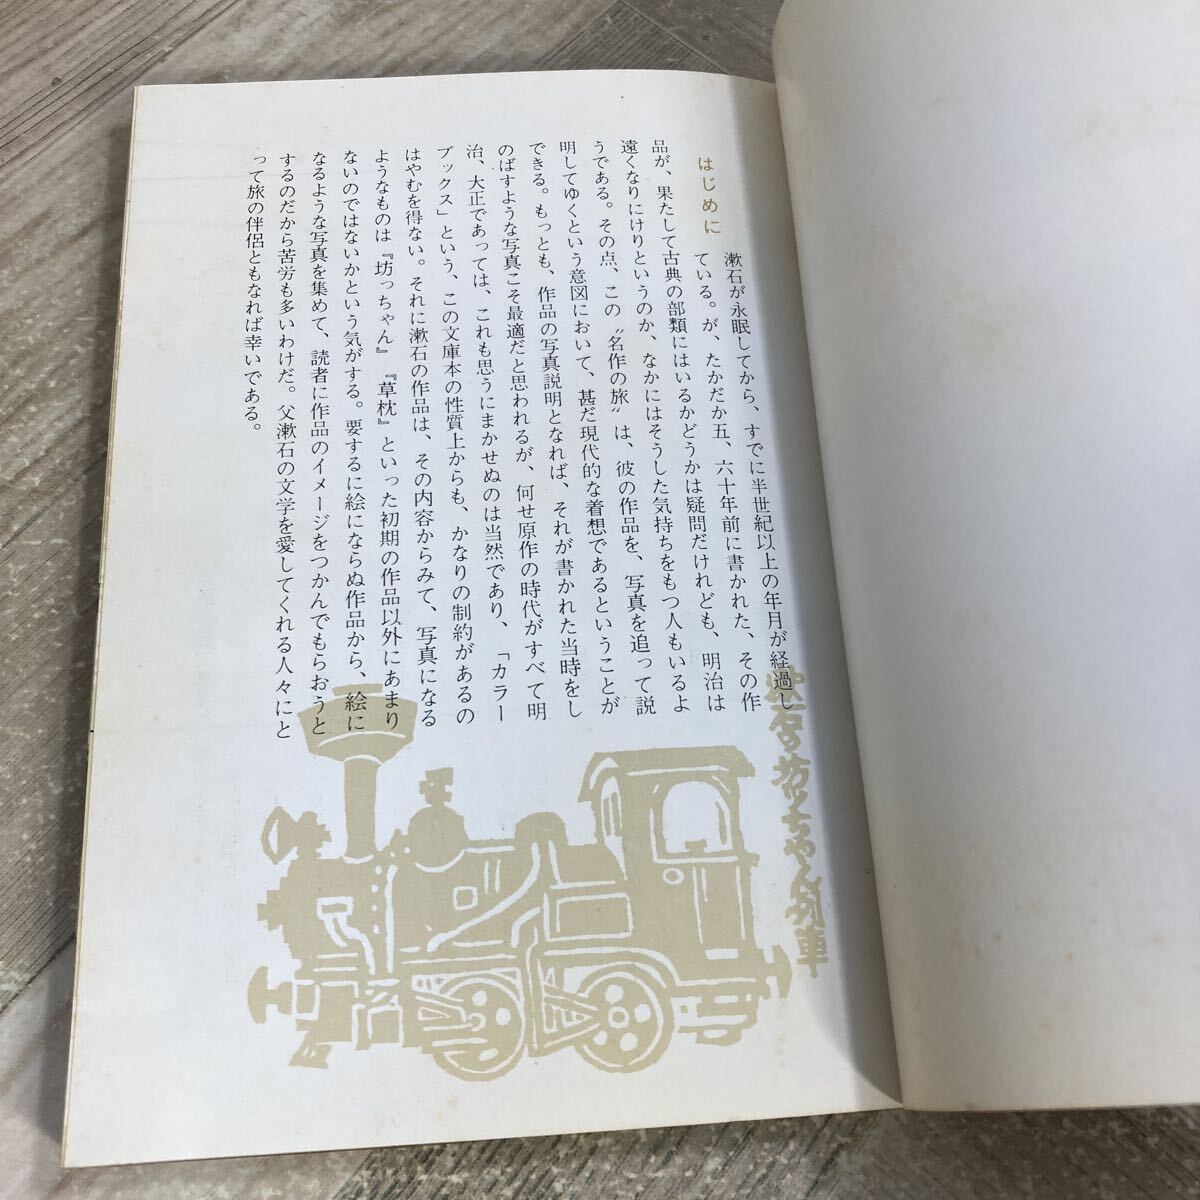 はじめに
漱石が永眠してから、すでに半世紀以上の年月が経過し
ている。が、たかだか五、六十年前に書かれた、その作
品が、果たして古典の部類にはいるかどうかは疑問だけれども、明治は
遠くなりにけりというのか、なかにはそうした気持ちをもつ人もいるよ
うである。その点、この〝名作の旅〟は、彼の作品を、写真を追って説
明してゆくという意図において、甚だ現代的な着想であるということが
できる。もっとも、作品の写真説明となれば、それが書かれた当時をし
のばすような写真こそ最適だと思われるが、何せ原作の時代がすべて明
治、大正であっては、これも思うにまかせぬのは当然であり、「カラー
ブックス」という、この文庫本の性質上からも、かなりの制約があるの
はやむを得ない。それに漱石の作品は、その内容からみて、写真になる
ようなものは『坊っちゃん』『草枕』といった初期の作品以外にあまり
ないのではないかという気がする。要するに絵にならぬ作品から、絵に
なるような写真を集めて、読者に作品のイメージをつかんでもらおうと
するのだから苦労も多いわけだ。父漱石の文学を愛してくれる人々にと
って旅の伴侶ともなれば幸いである。
坊っちゃん列車